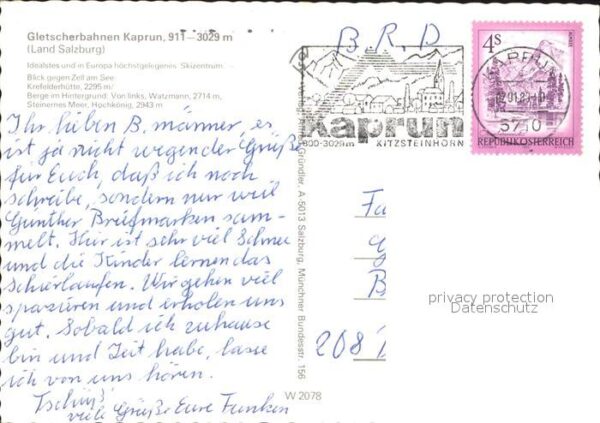 Gletscherbahnen Kaprun, 911–3029 m
(Land Salzburg)
Idealstes und in Europa höchstgelegenes Skizentrum
Blick gegen Zell am See
Krefelderhütte, 2295 m
Berge im Hintergrund: Von links, Watzmann, 2714 m,
Steinernes Meer, Hochkönig, 2943 m
Ihr lieben B. männer, es
ist ja nicht wegen der Grüße
für Euch, daß ich noch
schreibe, sondern nur weil
Günther Briefmarken sam-
melt. Hier ist sehr viel Schnee
und die Kinder lernen das
Schierlaufen. Wir gehen viel
spazieren und erholen uns
gut. Sobald ich zuhause
bin und Zeit habe, lasse
ich von uns hören.
Tschüß
viele Grüße Eure Funken
Gründler, A-5013 Salzburg, Münchner Bundesstr. 156
W 2078
B.R.D
Kaprun
800-3029m KITZSTEINHORN
KAPRUN
5710
4S
REPUBLIK ÖSTERREICH
Fa
B
208
privacy protection
Datenschutz